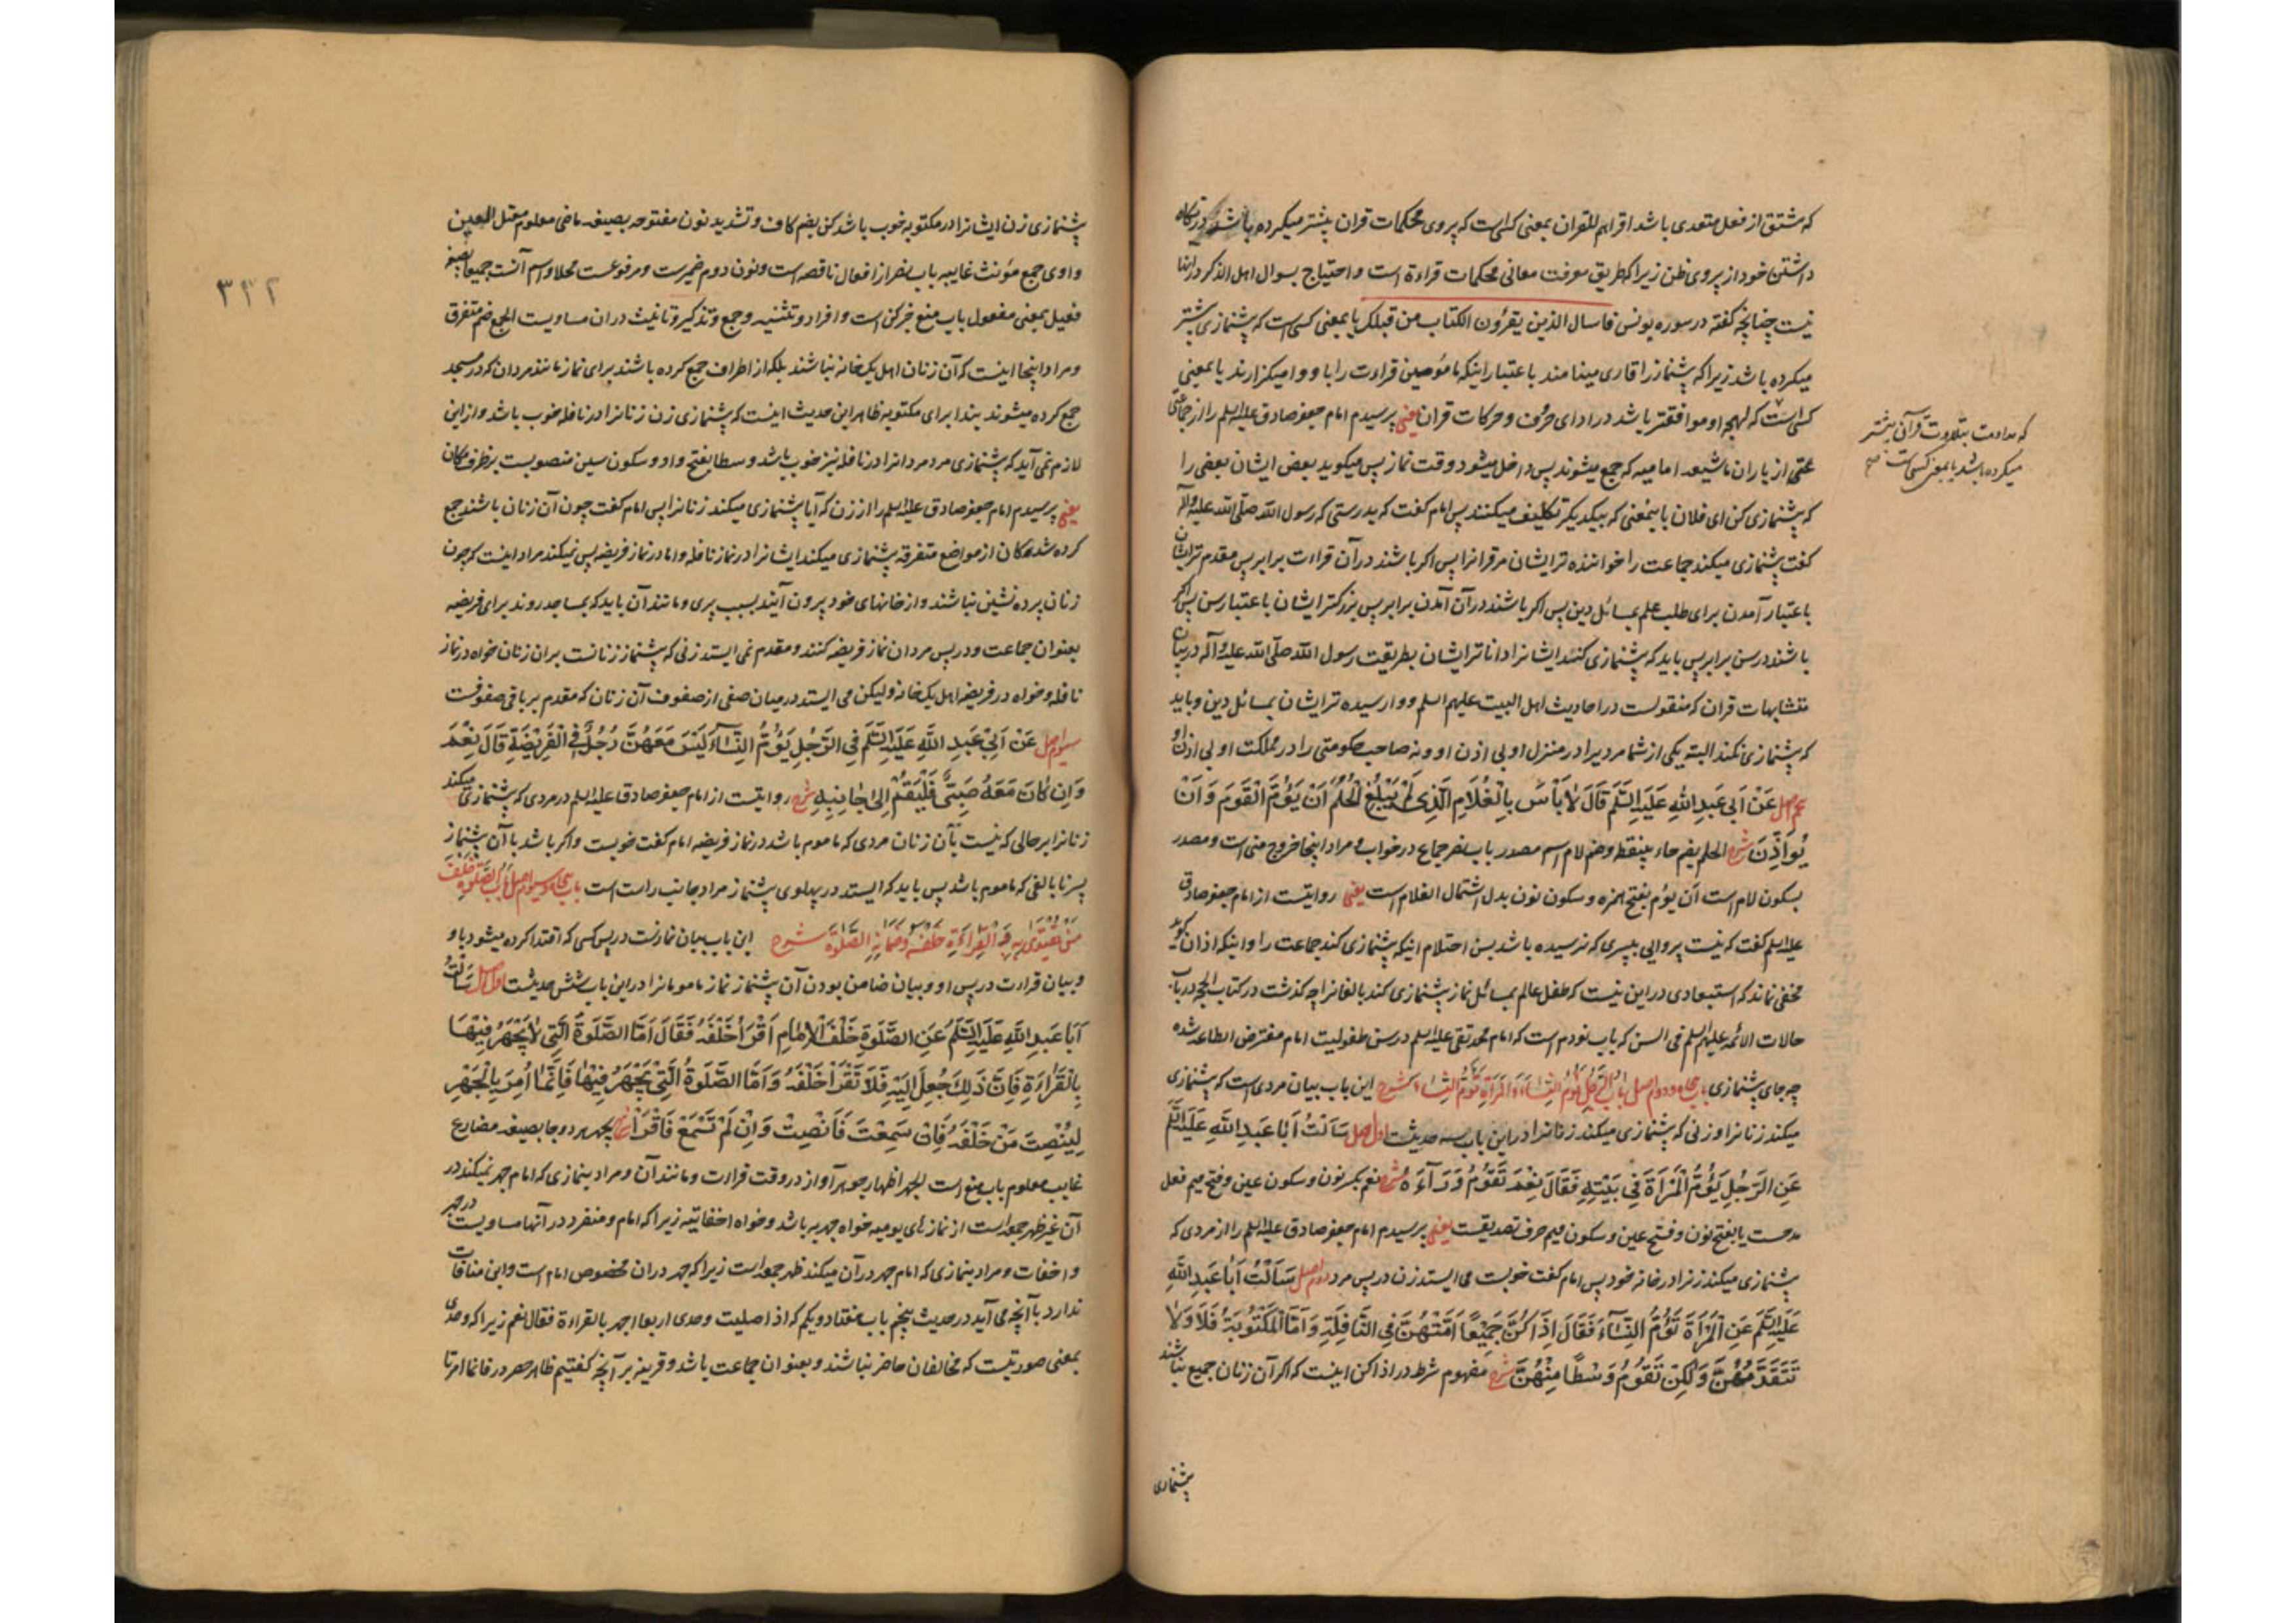 که مشتق از فعل متعدی باشد اقراهم للقران بمعنی کسی است که پیروی محکمات قران بیشتر میکرده باشد در نکاه
داشتن خود از پیروی ظن زیرا که طریق معرفت معانی محکمات قراءة است و احتیاج بسوال اهل الذکر در آنها
نیست چنانچه گفته در سوره یونس فاسال الذین یقرؤن الکتاب من قبلک یا بمعنی کسی است که پیشنمازی بیشتر
میکرده باشد زیرا که پیشنماز را قاری مینامند باعتبار اینکه مامومین قراءت را با و وا میگزارند یا بمعنی
کسی است که لهجه او موافقتر باشد در ادای حروف و حرکات قران یعنی پرسیدم امام جعفر صادق علیه السلم را از جماعتی
که مداومت بتلاوت قرآن بیشتر
میکرده باشد یا بمعنی کسی است صح
از یاران ما شیعه امامیه که جمع میشوند پس داخل میشود وقت نماز پس میکوید بعض ایشان بعضی را
که پیشنمازی کن ای فلان باینمعنی که بیکدیکر تکلیف میکنند پس امام گفت که بدرستی که رسول الله صلّی الله علیه و آله
گفت پیشنمازی میکند جماعت را خواننده تر ایشان مر قرانرا پس اکر باشند در آن قراءت برابر پس مقدم تر ایشان
باعتبار آمدن برای طلب علم بمسائل دین پس اکر باشند در آن آمدن برابر پس بزرکتر ایشان باعتبار سن پس اکر
باشند در سن برابر پس باید که پیشنمازی کند ایشانرا داناتر ایشان بطریقت رسول الله صلّی الله علیه و آله در بیان
متشابهات قران که منقولست در احادیث اهل البیت علیهم السلم و وارسیده تر ایشان بمسائل دین و باید
که پیشنمازی نکند البته یکی از شما مردیرا در منزل او بی اذن او و نه صاحب حکومتی را در مملکت او بی اذن او
اصل عَنْ اَبی عَبدِ اللهِ عَلَیهِ السَّلَم قَالَ لاٰ بَأسَ بِالْغُلَامِ الَّذِی لَمْ یَبْلُغِ الْحُلُمَ اَنْ یَؤُمَّ الْقَوْمَ وَ اَنْ
یُوَاَذِّنَ شرح الحلم بضم حاء بینقطه و ضم لام اسم مصدر باب نصر جماع در خواب و مراد اینجا خروج منی است و مصدر
بسکون لام است اَن یؤم بفتح همزه و سکون نون بدل اشتمال الغلام است یعنی روایتست از امام جعفر صادق
علیه السلم گفت که نیست پروایی بپسری که نرسیده باشد بسن احتلام اینکه پیشنمازی کند جماعت را و اینکه اذان کوید
مخفی نماند که استبعادی در این نیست که طفل عالم بمسائل نماز پیشنمازی کند بالغانرا چه کذشت در کتاب الحجة در باب
حالات الائمه علیهم السلم فی السن که باب نودم است که امام محمد تقی علیه السلم در سن طفولیت امام مفترض الطاعه شده
چه جای پیشنمازی باب پنجاه و دوم اصل باب الرَّجُلِ یَؤُمُّ النِّسَاءَ وَ الْمَرْأَةِ تَؤُمُّ النِّسَاءَ شرح این باب بیان مردی است که پیشنمازی
میکند زنانرا و زنی که پیشنمازی میکند زنانرا در این باب سه حدیثست اول اصل سَاَلْتُ اَبَا عَبدِ اللهِ عَلَیهِ السَّلَم
عَنِ الرَّجُلِ یَؤُمُّ الْمَرْاَةَ فِی بَیْتِهِ فَقَالَ نِعْمَ تَقُومُ وَرَآءَهُ شرح نعم بکسر نون و سکون عین و فتح میم فعل
مدحست یا بفتح نون و فتح عین و سکون میم حرف تصدیقست یعنی پرسیدم امام جعفر صادق علیه السلم را از مردی که
پیشنمازی میکند زنرا در خانه خود پس امام گفت خوبست می ایستد زن در پس مرد دوم اصل سَاَلْتُ اَبَا عَبدِ اللهِ
عَلَیهِ السَّلَم عَنِ الْمَرْاَةَ تَؤُمُّ النِّسَآءَ فَقَالَ اِذَا کُنَّ جَمِیْعًا اَمَّتْهُنَّ فِی النَّافِلَةِ وَ اَمَّا الْمَکْتُوبَةُ فَلَا وَ لاٰ
تَتَقَدَّمُهُنَّ وَ لٰکِنْ تَقُومُ وَسْطًا مِنْهُنَّ شرح مفهوم شرط در اذا کن اینست که اکر آن زنان جمیع نباشند
پیشنمازی
۳۳۲
پیشنمازی زن ایشانرا در مکتوبه خوب باشد کن بضم کاف و تشدید نون مفتوحه بصیغه ماضی معلوم معتل العین
واوی جمع مؤنث غایبه باب نصر از افعال ناقصه است و نون دوم ضمیرست و مرفوعست محلا و اسم آنست جمیعا بصیغه
فعیل بمعنی مفعول باب منع خبر کن است و افراد و تثنیه و جمع و تذکیر و تانیث در ان مساویست الجمع ضم متفرق
و مراد اینجا اینست که آن زنان اهل یک خانه نباشند بلکه از اطراف جمع کرده باشند برای نماز مانند مردان که در مسجد
جمع کرده میشوند بندا برای مکتوبه ظاهر این حدیث اینست که پیشنمازی زن زنانرا در نافله خوب باشد و از این
لازم نمی آید که پیشنمازی مرد مردانرا در نافله نیز خوب باشد وسطا بفتح واو و سکون سین منصوبست بر ظرف مکان
یعنی پرسیدم امام جعفر صادق علیه السلم را از زن که آیا پیشنمازی میکند زنانرا پس امام گفت چون آن زنان باشند جمع
کرده شدهکان از مواضع متفرقه پیشنمازی میکند ایشانرا در نماز نافله و اما در نماز فریضه پس نمیکند مراد اینست که چون
زنان پرده نشین نباشند و از خانهای خود بیرون آیند بسبب پیری و مانند آن باید که بمساجد روند برای فریضه
بعنوان جماعت و در پس مردان نماز فریضه کنند و مقدم نمی ایستد زنی که پیشنماز زنانست بران زنان خواه در نماز
نافله و خواه در فریضه اهل یک خانه و لیکن می ایستد در میان صفی از صفوف آن زنان که مقدم بر باقی صفوفست
سیوم اصل عَنْ اَبِیْ عَبدِ اللهِ عَلَیهِ السَّلَم فِی الرَّجُلِ یَؤُمُّ النِّسَآءَ لَیْسَ مَعَهُنَّ رَجُلٌ فِی الْفَرِیْضَةِ قَالَ نِعْمَ
وَ اِن کَانَ مَعَهُ صَبِیٌّ فَلْیَقُمْ اِلیٰ جَانِبِهِ شرح روایتست از امام جعفر صادق علیه السلم در مردی که پیشنمازی میکند
زنانرا بر حالی که نیست بآن زنان مردی که ماموم باشد در نماز فریضه امام گفت خوبست و اکر باشد با آن پیشنماز
پسر نابالغی که ماموم باشد پس باید که ایستد در پهلوی پیشنماز مراد جانب راست است باب پنجاه و سیوم اصل بَابُ الصَّلوةِ خَلْفَ
مَنْ یُقْتَدیٰ بِهِ وَ الْقِرَاءَةِ خَلْفَهُ وَ ضَمَانِهِ الصَّلٰوةَ شرح این باب بیان نمازست در پس کسی که اقتدا کرده میشود باو
و بیان قراءت در پس او و بیان ضامن بودن آن پیشنماز نماز مامومانرا در این باب شش حدیثست اول اصل سَاَلْتُ
اَبَا عَبدِ اللهِ عَلَیهِ السَّلَم عَنِ الصَّلٰوةِ خَلْفَ الْاِمَامِ اَقْرَاُ خَلْفَهُ فَقَالَ اَمَّا الصَّلٰوةُ الَّتِی لاٰ یَجْهَرُ فِیْهَا
بِالْقَرَاءَةِ فَاِنَّ ذٰلِکَ جُعِلَ اِلَیْهِ فَلَا تَقْرَاْ خَلْفَهُ وَ اَمَّا الصَّلٰوةُ الَّتِی یَجْهَرُ فِیْهَا فَاِنَّمَا اُمِرَ بِالْجَهْرِ
لِیُنْصِتَ مَنْ خَلْفَهُ فَاِنْ سَمِعْتَ فَاَنْصِتْ وَ اِنْ لَمْ تَسْمَعْ فَاقْرَاْ شرح یجهر هر دو جا بصیغه مضارع
غایب معلوم باب منع است الجهر اظهار جوهر آواز در وقت قراءت و مانند آن و مراد بنمازی که امام جهر نمیکند در
آن غیر ظهر جمعه است از نمازهای یومیه خواه جهریه باشد و خواه اخفاتیه زیرا که امام و منفرد در آنها مساویست در جهر
و اخفات و مراد بنمازی که امام جهر در آن میکند ظهر جمعه است زیرا که جهر در ان مخصوص امام است و این منافات
ندارد با آنچه می آید در حدیث پنجم باب هفتاد و یکم که اذا صلیت وحدی اربعا اجهر بالقراءة فقال نعم زیرا که وحدی
بمعنی صورتیست که مخالفان حاضر نباشند و بعنوان جماعت باشد و قرینه بر آنچه کفتیم ظاهر حصر در فانما امر تا